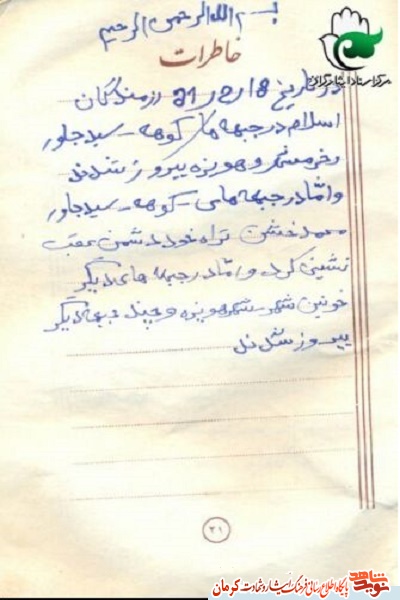 بسم الله الرحمن الرحیم
خاطرات
مرکز اسناد ایثارگران
در تاریخ 18/2/21 رزمندگان
اسلام در جبهه ها کوهه - سید جابر
و خرمشهر و هویزه پیروز شدند
و اما در جبهه های - کوهه - سید جابر
دشمن عقب
نشینی کرد و اما در جبهه های دیگر
خونین شهر - شهر هویزه و چند جبهه دیگر
پیروز شدند
۳۱
نوید شاهد پایگاه اطلاع رسانی فرهنگ ایثار و شهادت کرمان